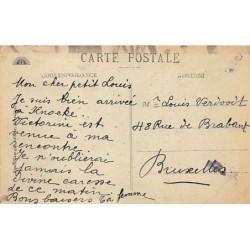 CARTE POSTALE
CORRESPONDANCE
ADRESSE
Mon cher petit Louis
Je suis bien arrivée
à Knocke.
Victorine est
venue à ma
rencontre
Je n'oublierai
jamais la
divine caresse
de ce matin.
Bons baisers ta femme
Mr Louis Verdoodt
48 Rue de Brabant
Bruxelles